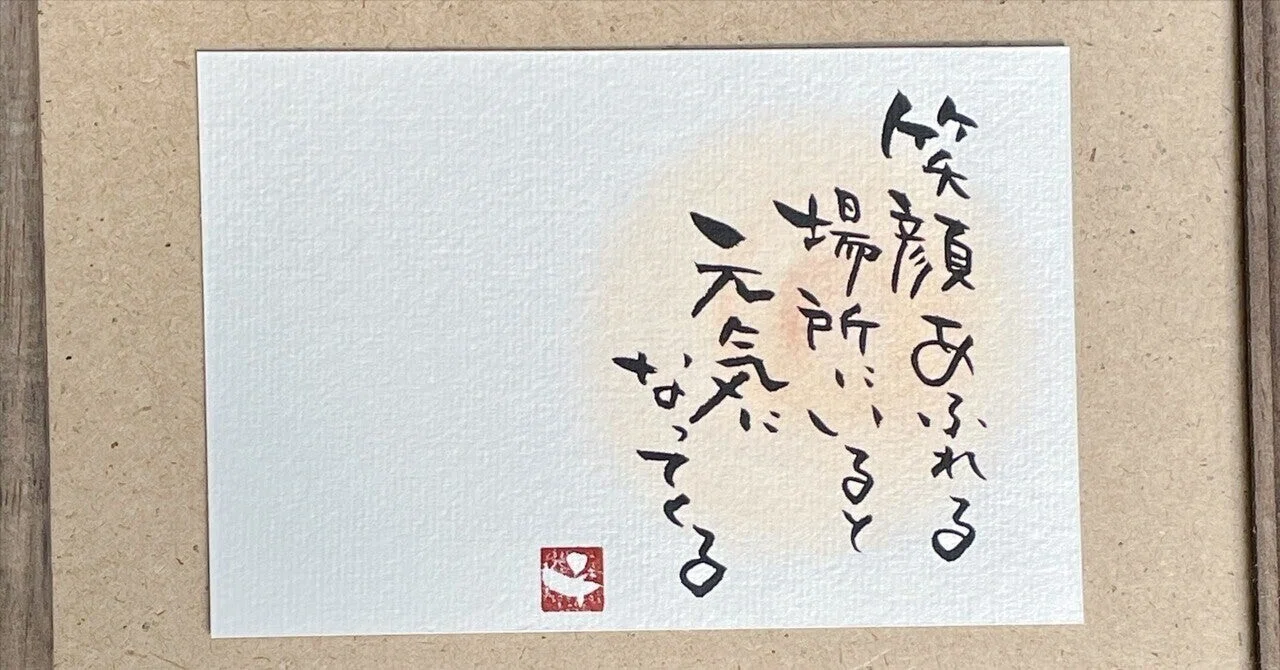 笑顔あふれる
場所にいると
元気に
なってくる